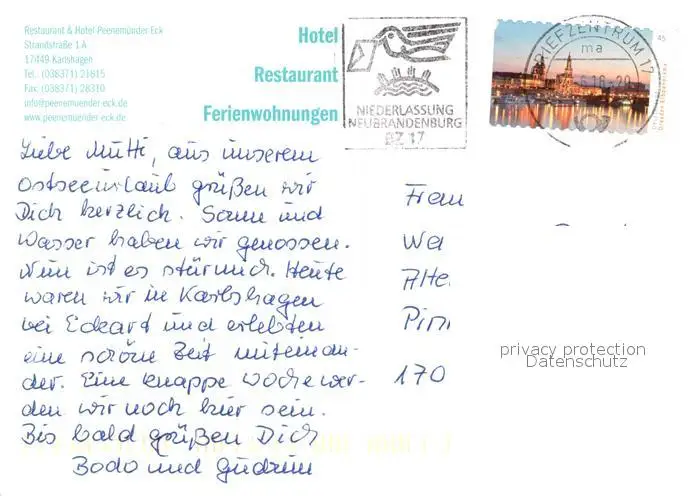 Restaurant & Hotel Peenemünder Eck
Strandstraße 1 A
17449 Karlshagen
Tel.: (038371) 21815
Fax: (038371) 28310
info@peenemuender-eck.de
www.peenemuender-eck.de
Hotel
Restaurant
Ferienwohnungen
NIEDERLASSUNG
NEUBRANDENBURG
BZ 17
BRIEFZENTRUM 17
ma
45
Liebe Mutti, aus unserem
Ostseeurlaub grüßen wir
Dich herzlich. Sonne und
Wasser haben wir genossen.
Nun ist es stürmisch. Heute
waren wir in Karlshagen
bei Eckart und erlebten
eine schöne Zeit miteinan-
der. Eine knappe Woche wer-
den wir noch hier sein.
Bis bald grüßen Dich
Bodo und Gudrun
Frau
We
Alte
Pir
170
privacy protection
Datenschutz